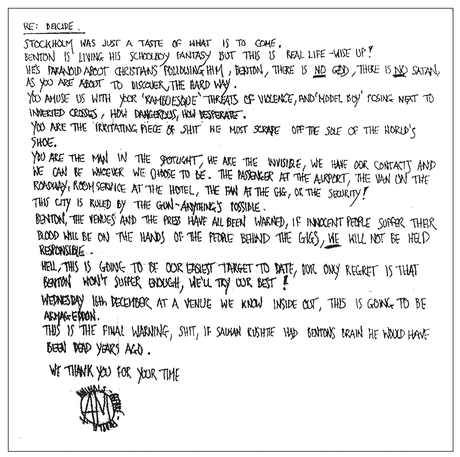 RE: DEICIDE.
STOCKHOLM WAS JUST A TASTE OF WHAT IS TO COME.
BENTON IS LIVING HIS SCHOOLBOY FANTASY BUT THIS IS REAL LIFE - WISE UP!
HE'S PARANOID ABOUT CHRISTIANS FOLLOWING HIM, BENTON, THERE IS NO GOD, THERE IS NO SATAN,
AS YOU ARE ABOUT TO DISCOVER, THE HARD WAY.
YOU AMUSE US WITH YOUR 'RAMBOESQUE' THREATS OF VIOLENCE, AND 'MODEL BOY' POSING NEXT TO
INVERTED CROSSES, HOW DANGEROUS, HOW DESPERATE.
YOU ARE THE 'IRRITATING PIECE OF SHIT' WE MUST SCRAPE OFF THE SOLE OF THE WORLD'S
SHOE.
YOU ARE THE MAN IN THE SPOTLIGHT, WE ARE THE INVISIBLE, WE HAVE OUR CONTACTS AND
WE CAN BE WHOEVER WE CHOOSE TO BE. THE PASSENGER AT THE AIRPORT, THE VAN ON THE
ROADWAY, ROOM SERVICE AT THE HOTEL, THE FAN AT THE GIG, OR THE SECURITY!
THIS CITY IS RULED BY THE GUN - ANYTHING'S POSSIBLE.
BENTON, THE VENUES AND THE PRESS HAVE ALL BEEN WARNED, IF INNOCENT PEOPLE SUFFER THEIR
BLOOD WILL BE ON THE HANDS OF THE PEOPLE BEHIND THE GIGS, WE WILL NOT BE HELD
RESPONSIBLE.
HELL, THIS IS GOING TO BE OUR EASIEST TARGET TO DATE, OUR ONLY REGRET IS THAT
BENTON WON'T SUFFER ENOUGH, WE'LL TRY OUR BEST!
WEDNESDAY 16th DECEMBER AT A VENUE WE KNOW INSIDE OUT, THIS IS GOING TO BE
ARMAGEDDON.
THIS IS THE FINAL WARNING, SHIT, IF SALMAN RUSHTIE HAD BENTONS BRAIN HE WOULD HAVE
BEEN DEAD YEARS AGO.
WE THANK YOU FOR YOUR TIME
ANIMAL
AM